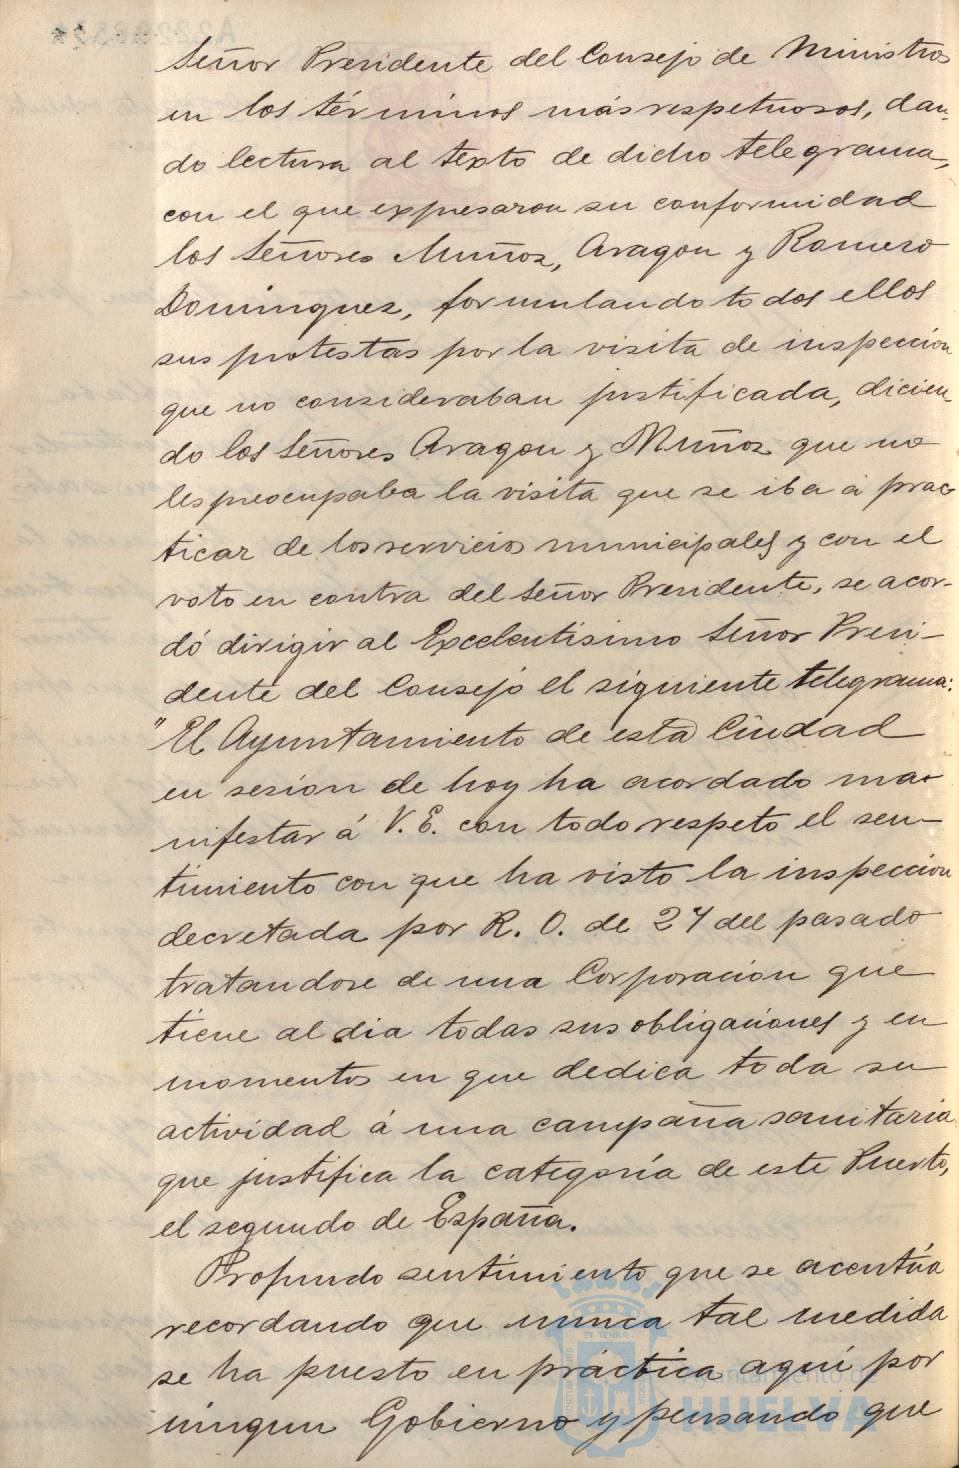 Señor Presidente del Consejo de Ministros
en los términos más respetuosos, dan-
do lectura al texto de dicho telegrama,
con el que expresaron su conformidad
los Señores Muñoz, Aragon y Romero
Dominguez, formulando todos ellos
sus protestas por la visita de inspeccion
que no consideraban justificada, dicien-
do los Señores Aragon y Muñoz que no
les preocupaba la visita que se iba á prac-
ticar de los servicios municipales y con el
voto en contra del Señor Presidente, se acor-
dó dirigir al Excelentisimo Señor Presi-
dente del Consejo el siguiente telegrama:
"El Ayuntamiento de esta Ciudad
en sesion de hoy ha acordado ma-
nifestar á V. E. con todo respeto el sen-
timiento con que ha visto la inspeccion
decretada por R. O. de 27 del pasado
tratandose de una Corporacion que
tiene al dia todas sus obligaciones y en
momentos en que dedica toda su
actividad á una campaña sanitaria
que justifica la categoría de este Puerto,
el segundo de España.
Profundo sentimiento que se acentúa
recordando que nunca tal medida
se ha puesto en práctica aquí por
ningun Gobierno y pensando que
Ayuntamiento de
HUELVA